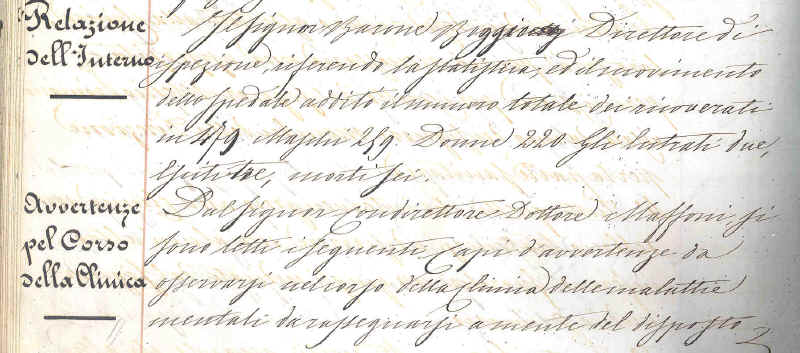 Relazione
dell'Interno
Il signor Barone Direttore di
ispezione, riferendo la statistica, ed il movimento
dello spedale additò il numero totale dei ricoverati
in 479. Maschi 259. Donne 220. Gli Entrati due,
Esciti tre, morti sei.
Avvertenze
pel Corso
della Clinica
Dal signor Condirettore Dottore Maffoni si
sono letti i seguenti Capi d'avvertenze da
osservarsi nel corso della Clinica delle malattie
mentali da rassegnarsi a mente del disposto